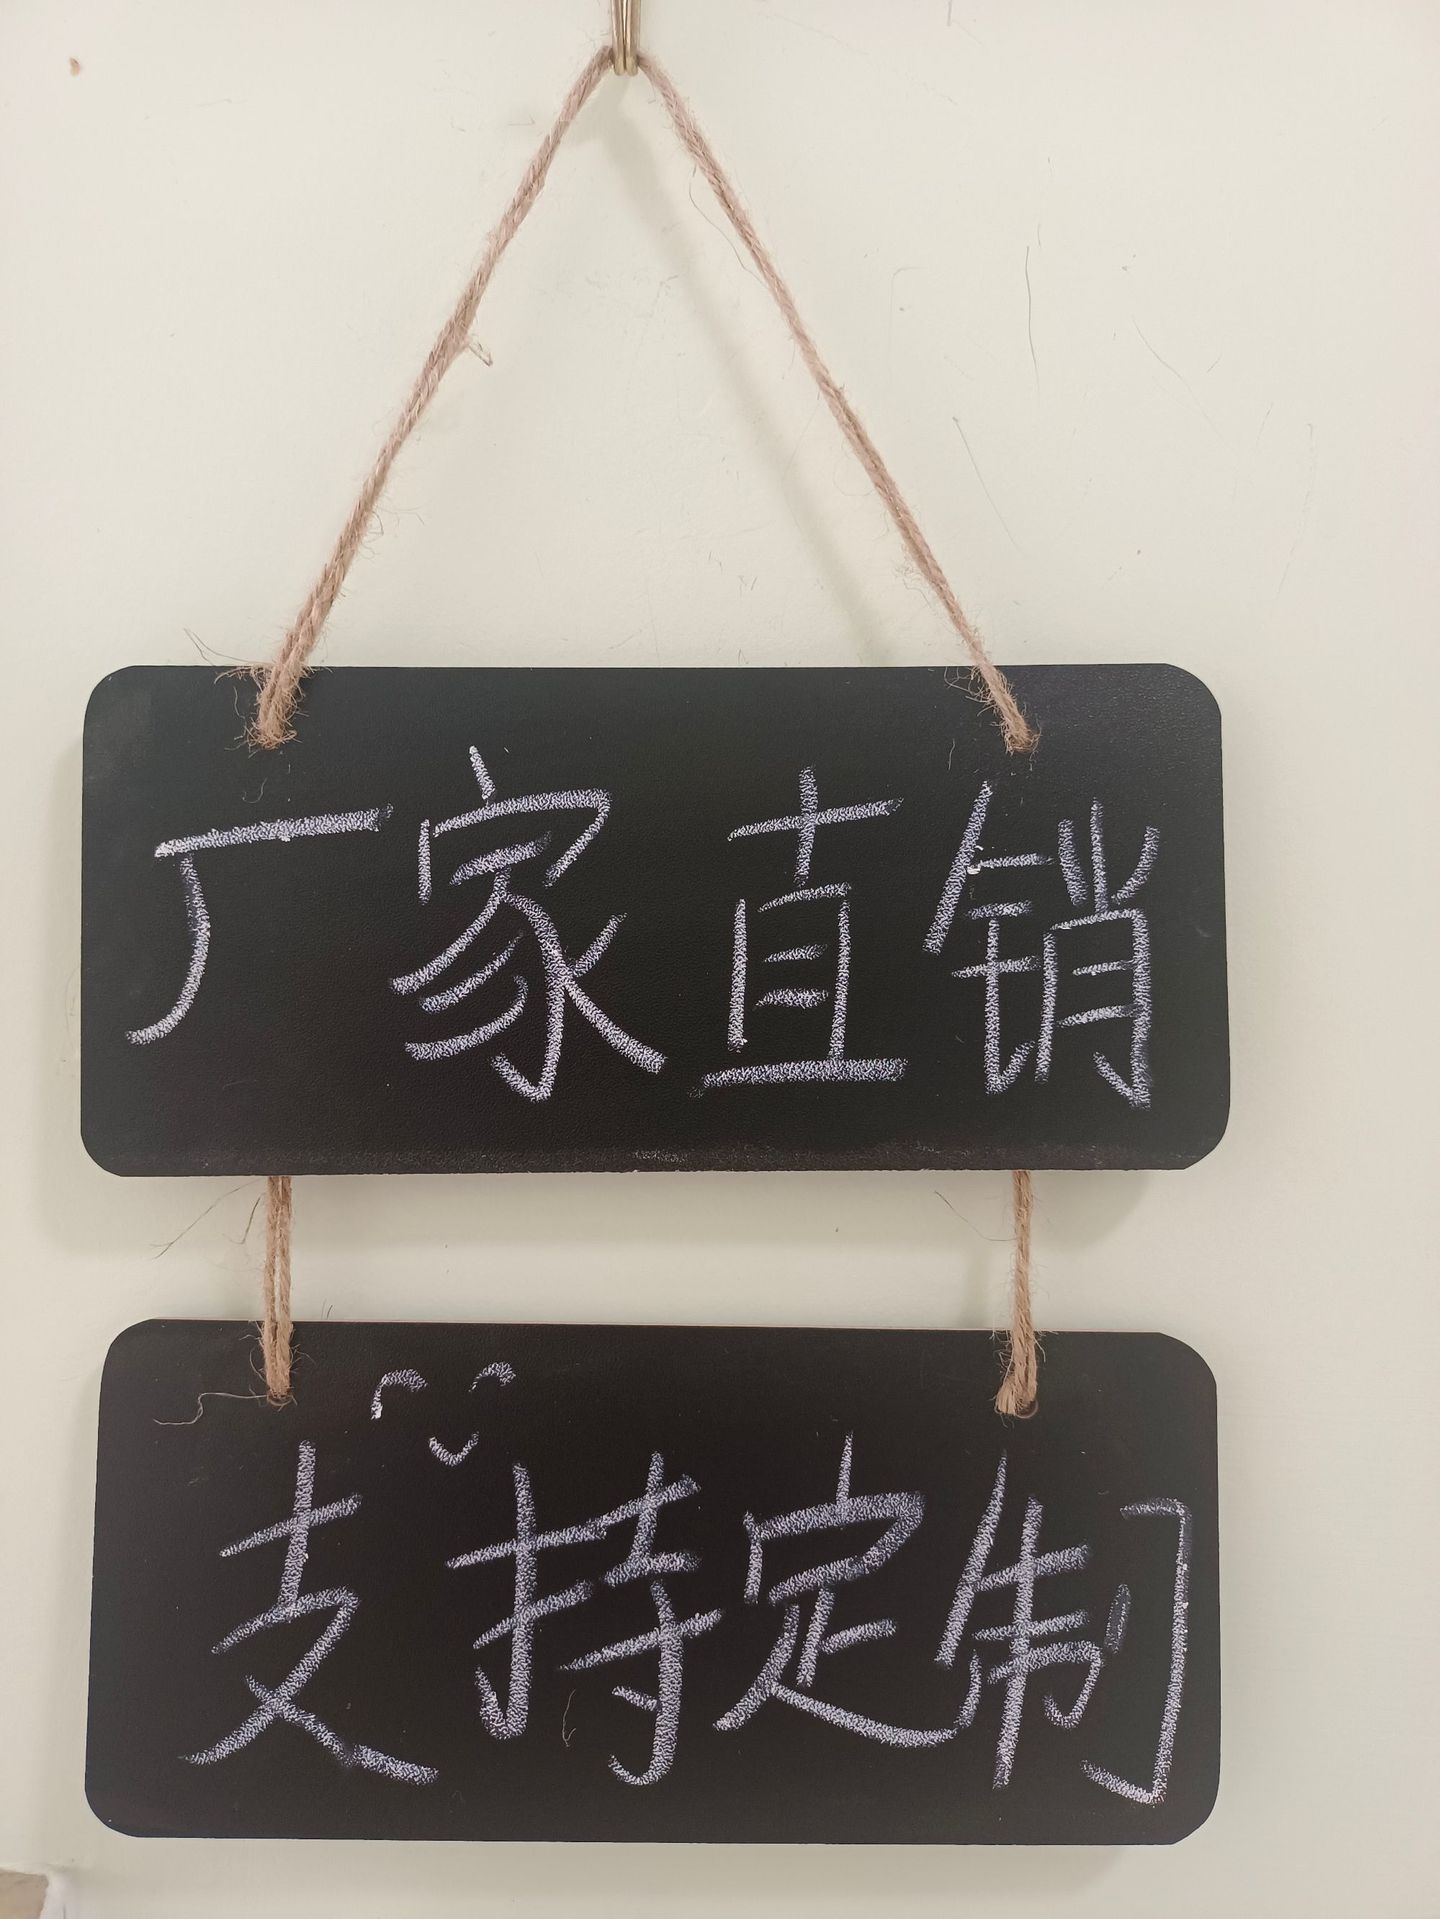 厂家直销
支持定制